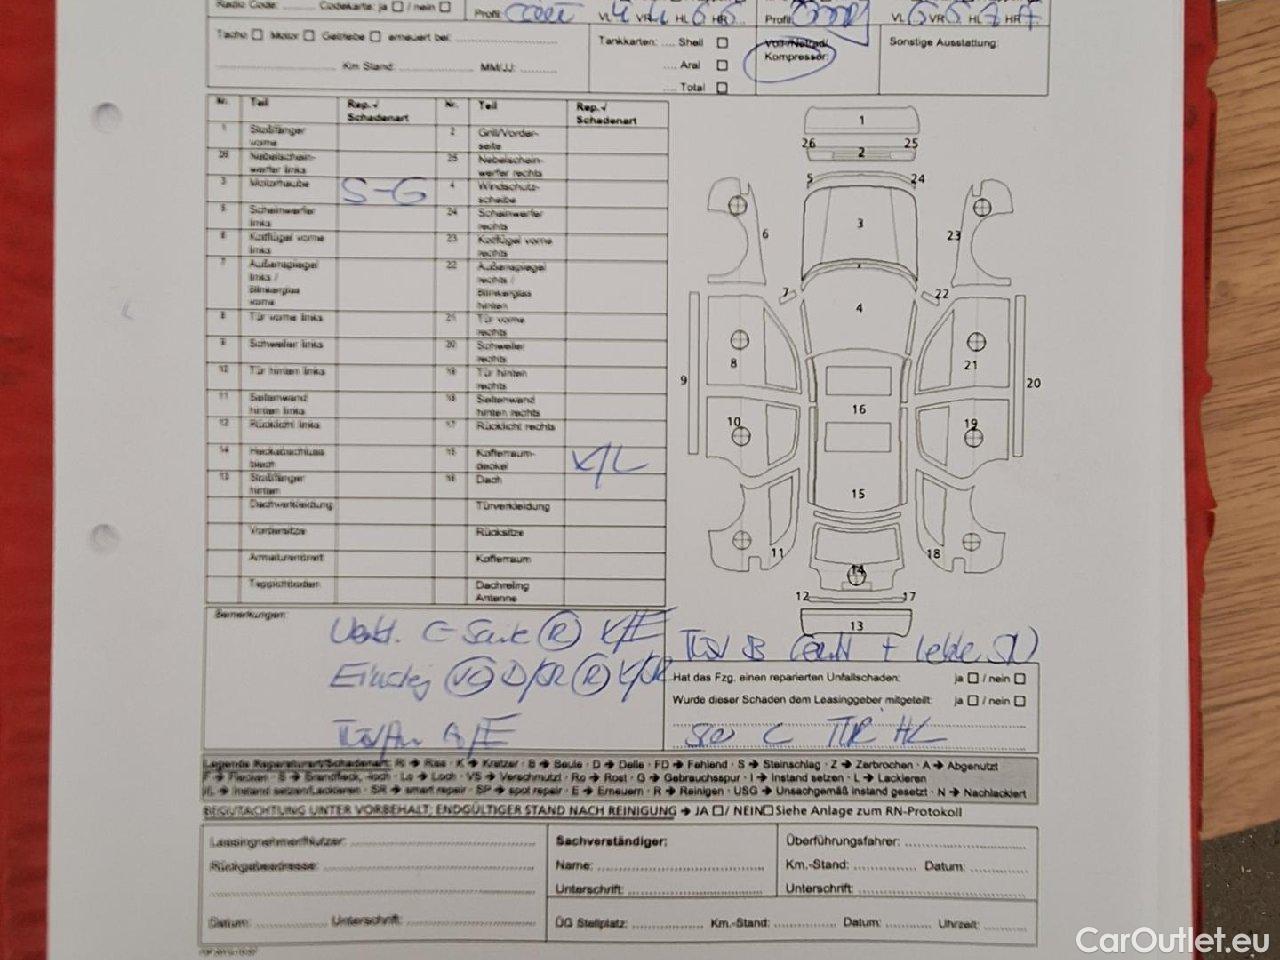 Radio Code: ........ Codekarte: ja / nein
Profil
VL 4 VR HL 6 HR
Profil
VL 6 VR 5 HL 7 HR 7
Tacho Motor Getriebe erneuert bei:
Km Stand: MM/JJ:
Tankkarten: .... Shell
.... Aral
.... Total
Kompressor:
Sonstige Ausstattung:
Nr. Teil Rep.-/ Schadenart Nr. Teil Rep.-/ Schadenart
1 Stoßfänger vorne 2 Grill/Vorder-seite
26 Nebelschein-werfer links 25 Nebelschein-werfer rechts
3 Motorhaube S-G 4 Windschutz-scheibe
5 Scheinwerfer links 24 Scheinwerfer rechts
6 Kotflügel vorne links 23 Kotflügel vorne rechts
7 Außenspiegel links / Blinkerglas vorne 22 Außenspiegel rechts / Blinkerglas hinten
8 Tür vorne links 21 Tür vorne rechts
9 Schweller links 20 Schweller rechts
10 Tür hinten links 19 Tür hinten rechts
11 Seitenwand hinten links 18 Seitenwand hinten rechts
12 Rücklicht links 17 Rücklicht rechts
14 Heckabschluss blech 15 Kofferraum-deckel K/L
13 Stoßfänger hinten 16 Dach
Dachverkleidung Türverkleidung
Vordersitze Rücksitze
Armaturenbrett Kofferraum
Teppichboden Dachreling Antenne
1
26 2 25
5 24
6 3 23
7 22
4
8 21
9 20
16
10 19
15
11 18
14
12 17
13
Bemerkungen:
C-Säule R K/E
R
A/E
Hat das Fzg. einen reparierten Unfallschaden: ja / nein
Wurde dieser Schaden dem Leasinggeber mitgeteilt: ja / nein
HL
Legende Reparaturart/Schadenart: R → Riss · K → Kratzer · B → Beule · D → Delle · FD → Fehlend · S → Steinschlag · Z → Zerbrochen · A → Abgenutzt
F → Flecken · B → Brandfleck, -loch · Lo → Loch · VS → Verschmutzt · Ro → Rost · G → Gebrauchsspur · I → Instand setzen · L → Lackieren
I/L → Instand setzen/Lackieren · SR → smart repair · SP → spot repair · E → Erneuern · R → Reinigen · USG → Unsachgemäß instand gesetzt · N → Nachlackiert
BEGUTACHTUNG UNTER VORBEHALT; ENDGÜLTIGER STAND NACH REINIGUNG → JA / NEIN Siehe Anlage zum RN-Protokoll
Leasingnehmer/Nutzer:
Rückgabeadresse:
Datum: Unterschrift:
Sachverständiger:
Name:
Unterschrift:
Überführungsfahrer:
Km.-Stand: Datum:
Unterschrift:
ÜG Stellplatz: Km.-Stand: Datum: Uhrzeit:
CarOutlet.eu